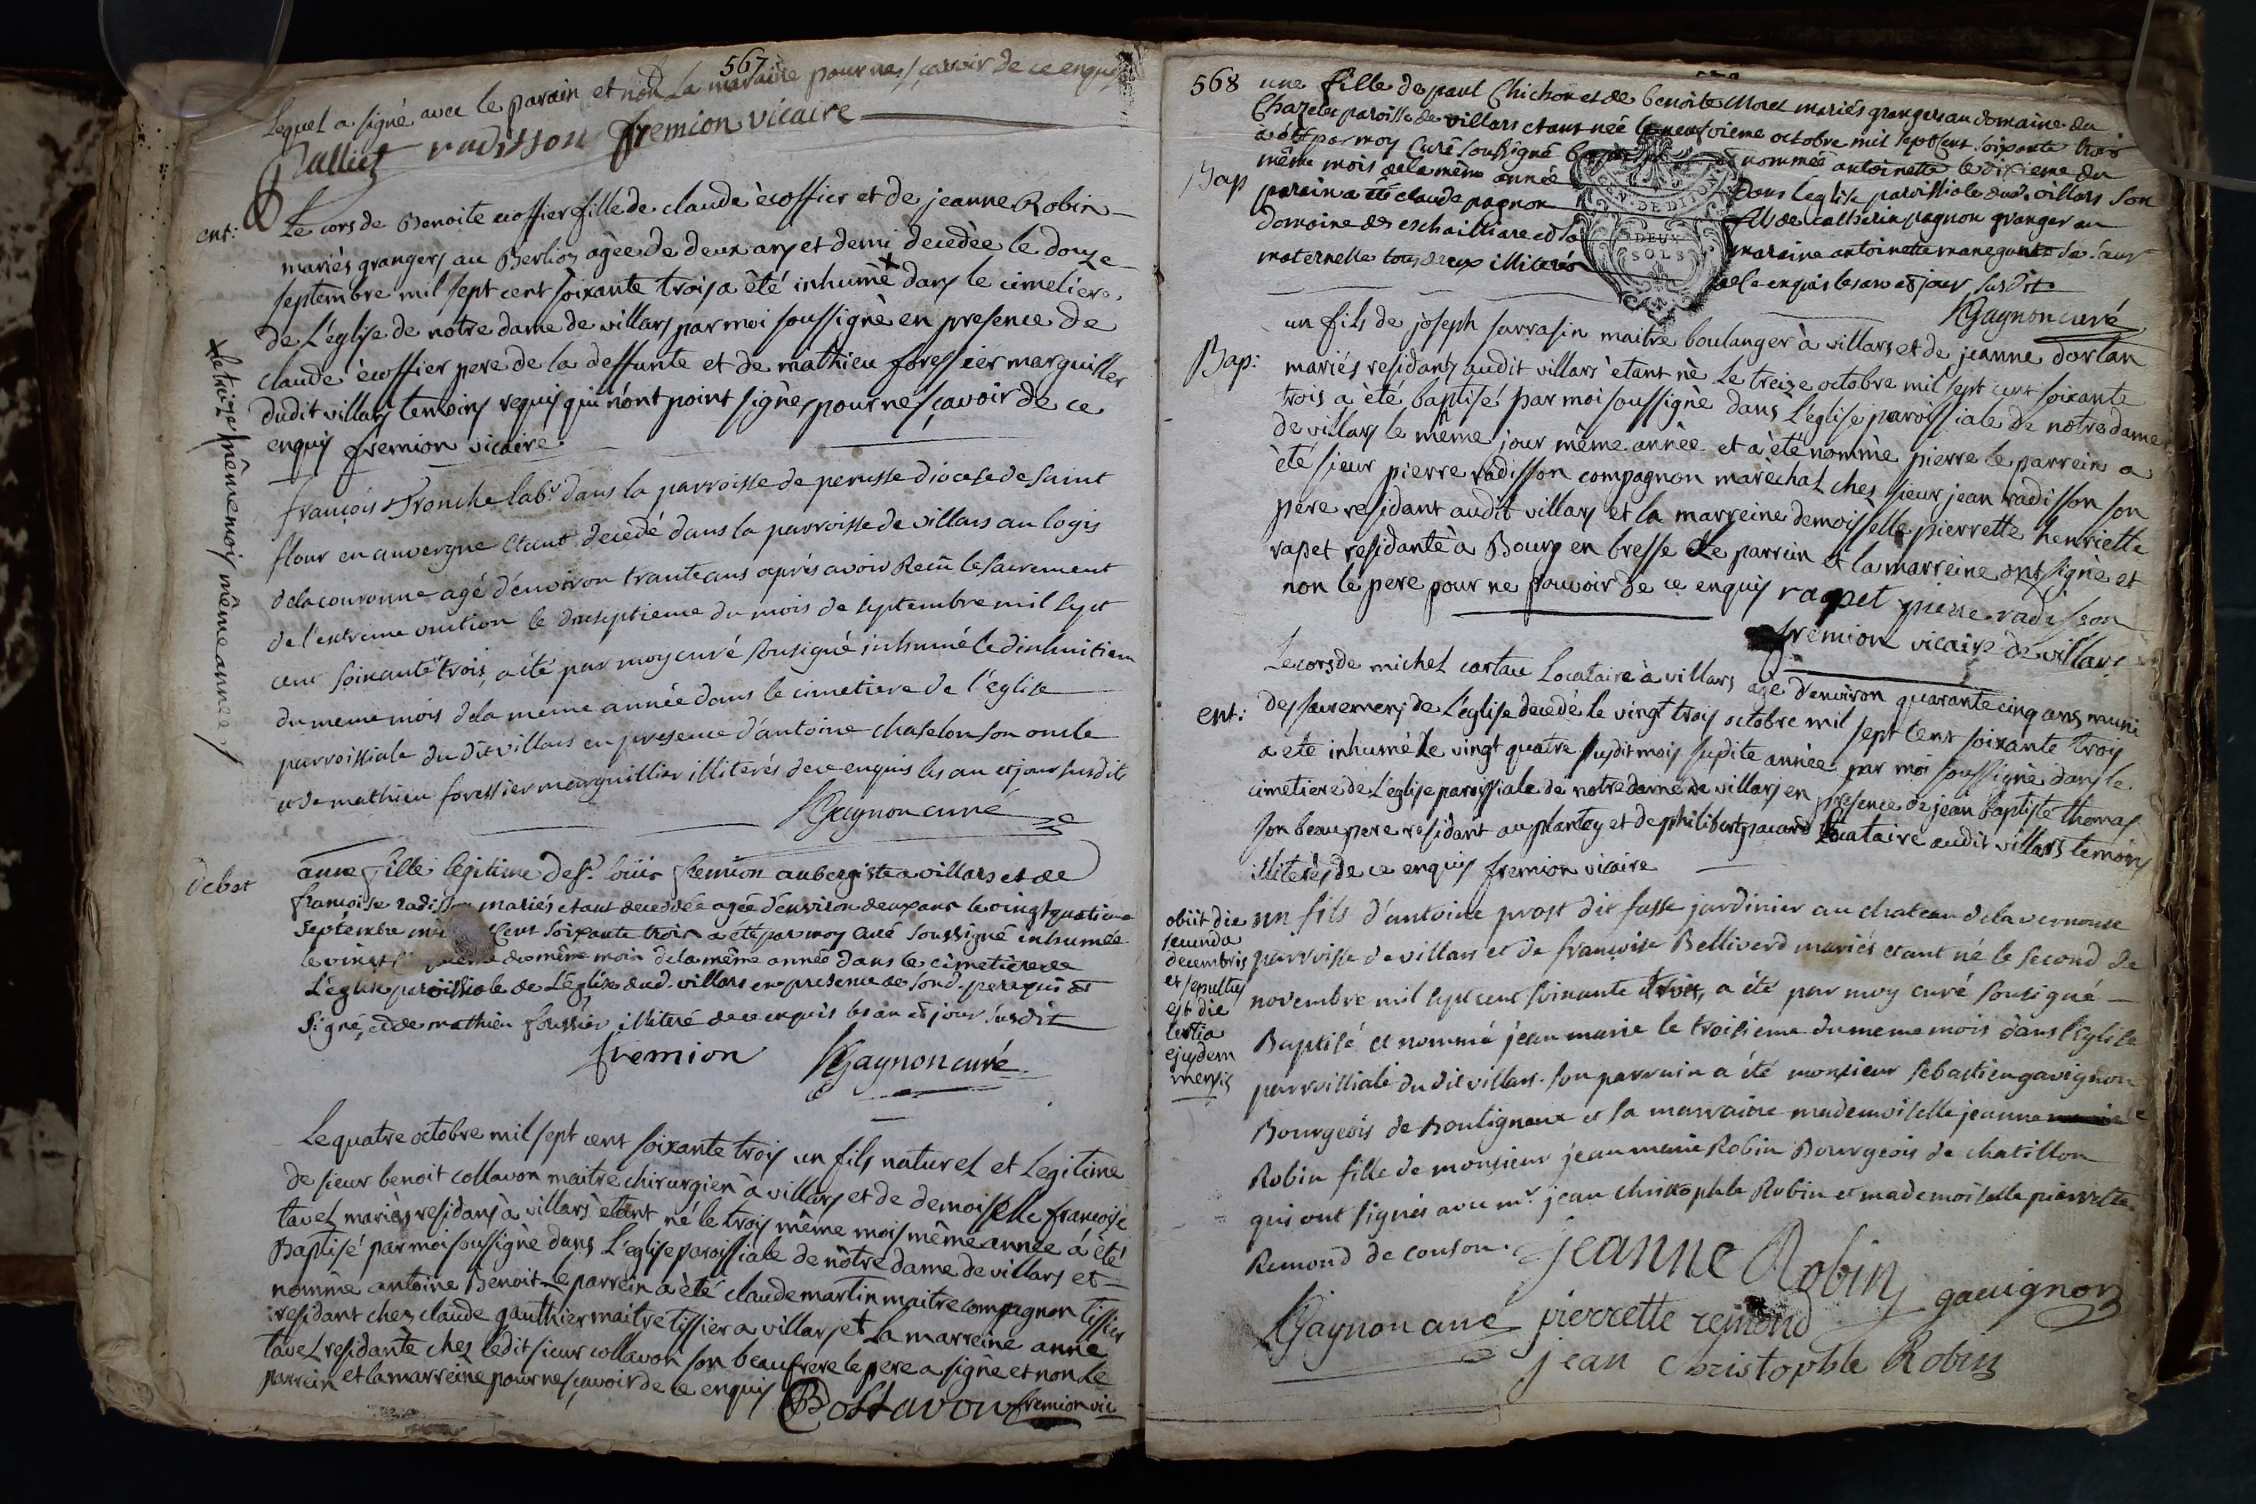 567
Lequel a signé avec le parain et non la maraine pour ne sçavoir de ce enquis
radisson fremion vicaire
ent:
Le cors de Benoite ecoffier fille de claude ècoffier et de jeanne Robin
mariés grangers au Berlion agèe de deux ans et demi decedèe le douze
septembre mil sept cent soixante trois a été inhumè x dans le cimetiere
de L'èglise de notre dame de villars par moi soussignè en presence de
claude ècoffier pere de la deffunte et de mathieu foressier marguiller
dudit villars temoins requis qui n'ont point signès pour ne sçavoir de ce
enquis fremion vicaire
x le treize même mois même annèe
françois Tronche labr dans la parroisse de perusse diocese de saint
flour en auvergne etant decedé dans la parroisse de villars au logis
dela couronne agé d'environ trante ans aprés avoir Recû le sacrement
de l'extreme onction le dixseptieme du mois de septembre mil sept
cent soixante trois, a été par moy curé sousigné inhumé le dixhuitiem
du meme mois dela meme année dans le cimetiere de l'eglise
parroissiale du dit villars en presence d'antoine chaselon son oncle
et de mathieu foressier marguillier illiterés de ce enquis les an et jour susdits
Gagnon curé
debet
anne fille legitime de sr. loüis fremion aubergiste a villars et de
francoise radisson mariés etant decedée agée d'environ deux ans le vingtquatrieme
septembre mil cent soixante trois a été par moy curé soussigné inhumée
le vingt du même mois de la même année dans le cimetiere de
L'église paroissiale de L'église dud. villars en presence de sond. pere qui a
signé, et de mathieu foressier illiteré de ce enquis les an et jour susdit
fremion Gagnon curé
Le quatre octobre mil sept cent soixante trois un fils naturel et Legitime
de sieur benoit collavon maitre chirurgien à villars et de demoiselle françoise
tavel mariès residans à villars ètant né le trois même mois même annèe à été
Baptisé par moi soussignè dans L'eglise paroissiale de nôtre dame de villars et
nommè antoine Benoit le parrein a été claude martin maitre compagnon tissier
residant chez claude gauthier maitre tissier a villars et la marreine anne
tavel residante chez ledit sieur collavon son beaufrere le pere a signè et non le
parrein et la marreine pour ne sçavoir de ce enquis
Collavon fremion vic
568
une fille de paul Chichon et de benoite Moret mariés grangers au domaine du
Chazelet paroisse de villars etant née le neufvieme octobre mil sept cent soixante trois
à été par moy Curé soussigné nommée antoinette le dixieme du
Bap
même mois de la même année dans leglise paroissiale dud. villars son
parain a été claude pagnon fils de catherin pagnon granger au
domaine des eschaillare et sa maraine antoinette manegante sa sœur
maternelle tous deux illiterés de ce enquis les an et jour susdit
GEN. DE DIJON
DEUX
SOLS
Gagnon curé
Bap:
un fils de joseph sarrasin maitre boulanger à villars et de jeanne dorlan
mariés residants audit villars ètant nè le treize octobre mil sept cent soixante
trois à èté baptisé par moi soussignè dans L'eglise paroissiale de notre dame
de villars le même jour même annèe et a èté nommè pierre le parrein a
été sieur pierre radisson compagnon marechal chez sieur jean radisson son
pere residant audit villars et la marreine demoisselle pierrette henriette
rapet residante à Bourg en bresse Le parrein et la marreine ont signè et
non le pere pour ne pouvoir de ce enquis rapet pierre radisson
fremion vicaire de villars
ent:
Le cors de michel cartau Locataire à villars age d'environ quarante cinq ans muni
des sacremens de L'église decedè le vingt trois octobre mil sept cent soixante trois
a ete inhumè le vingt quatre susdit mois susdite annèe par moi soussignè dans le
cimetiere de L'eglise paroissiale de notre dame de villars en presence de jean baptiste thomas
son beaupere residant au plantey et de philibert pacard Locataire audit villars temoins
illiterés de ce enquis fremion vicaire
obiit die
secunda
decembris
et sepultus
est die
tertia
ejusdem
mensis
un fils d'antoine prost dit fasse jardinier au chateau dela vernouse
parroisse de villars et de françoise Belliverd mariés etant né le second de
novembre mil sept cent soixante trois, a été par moy curé sousigné
Baptisé et nommé jean marie le troisieme du meme mois dans l'eglise
parroissiale du dit villars. son parrain a été monsieur sebastien gavignon
Bourgeois de Bouligneux et sa marraine mademoiselle jeanne
Robin fille de monsieur jean marie Robin Bourgeois de chatillon
qui ont signés avec mr. jean christophle Robin et mademoiselle pierrette
Remond de couson.
jeanne Robin gavignon
Gagnon curé pierrette remond
jean christophle Robin